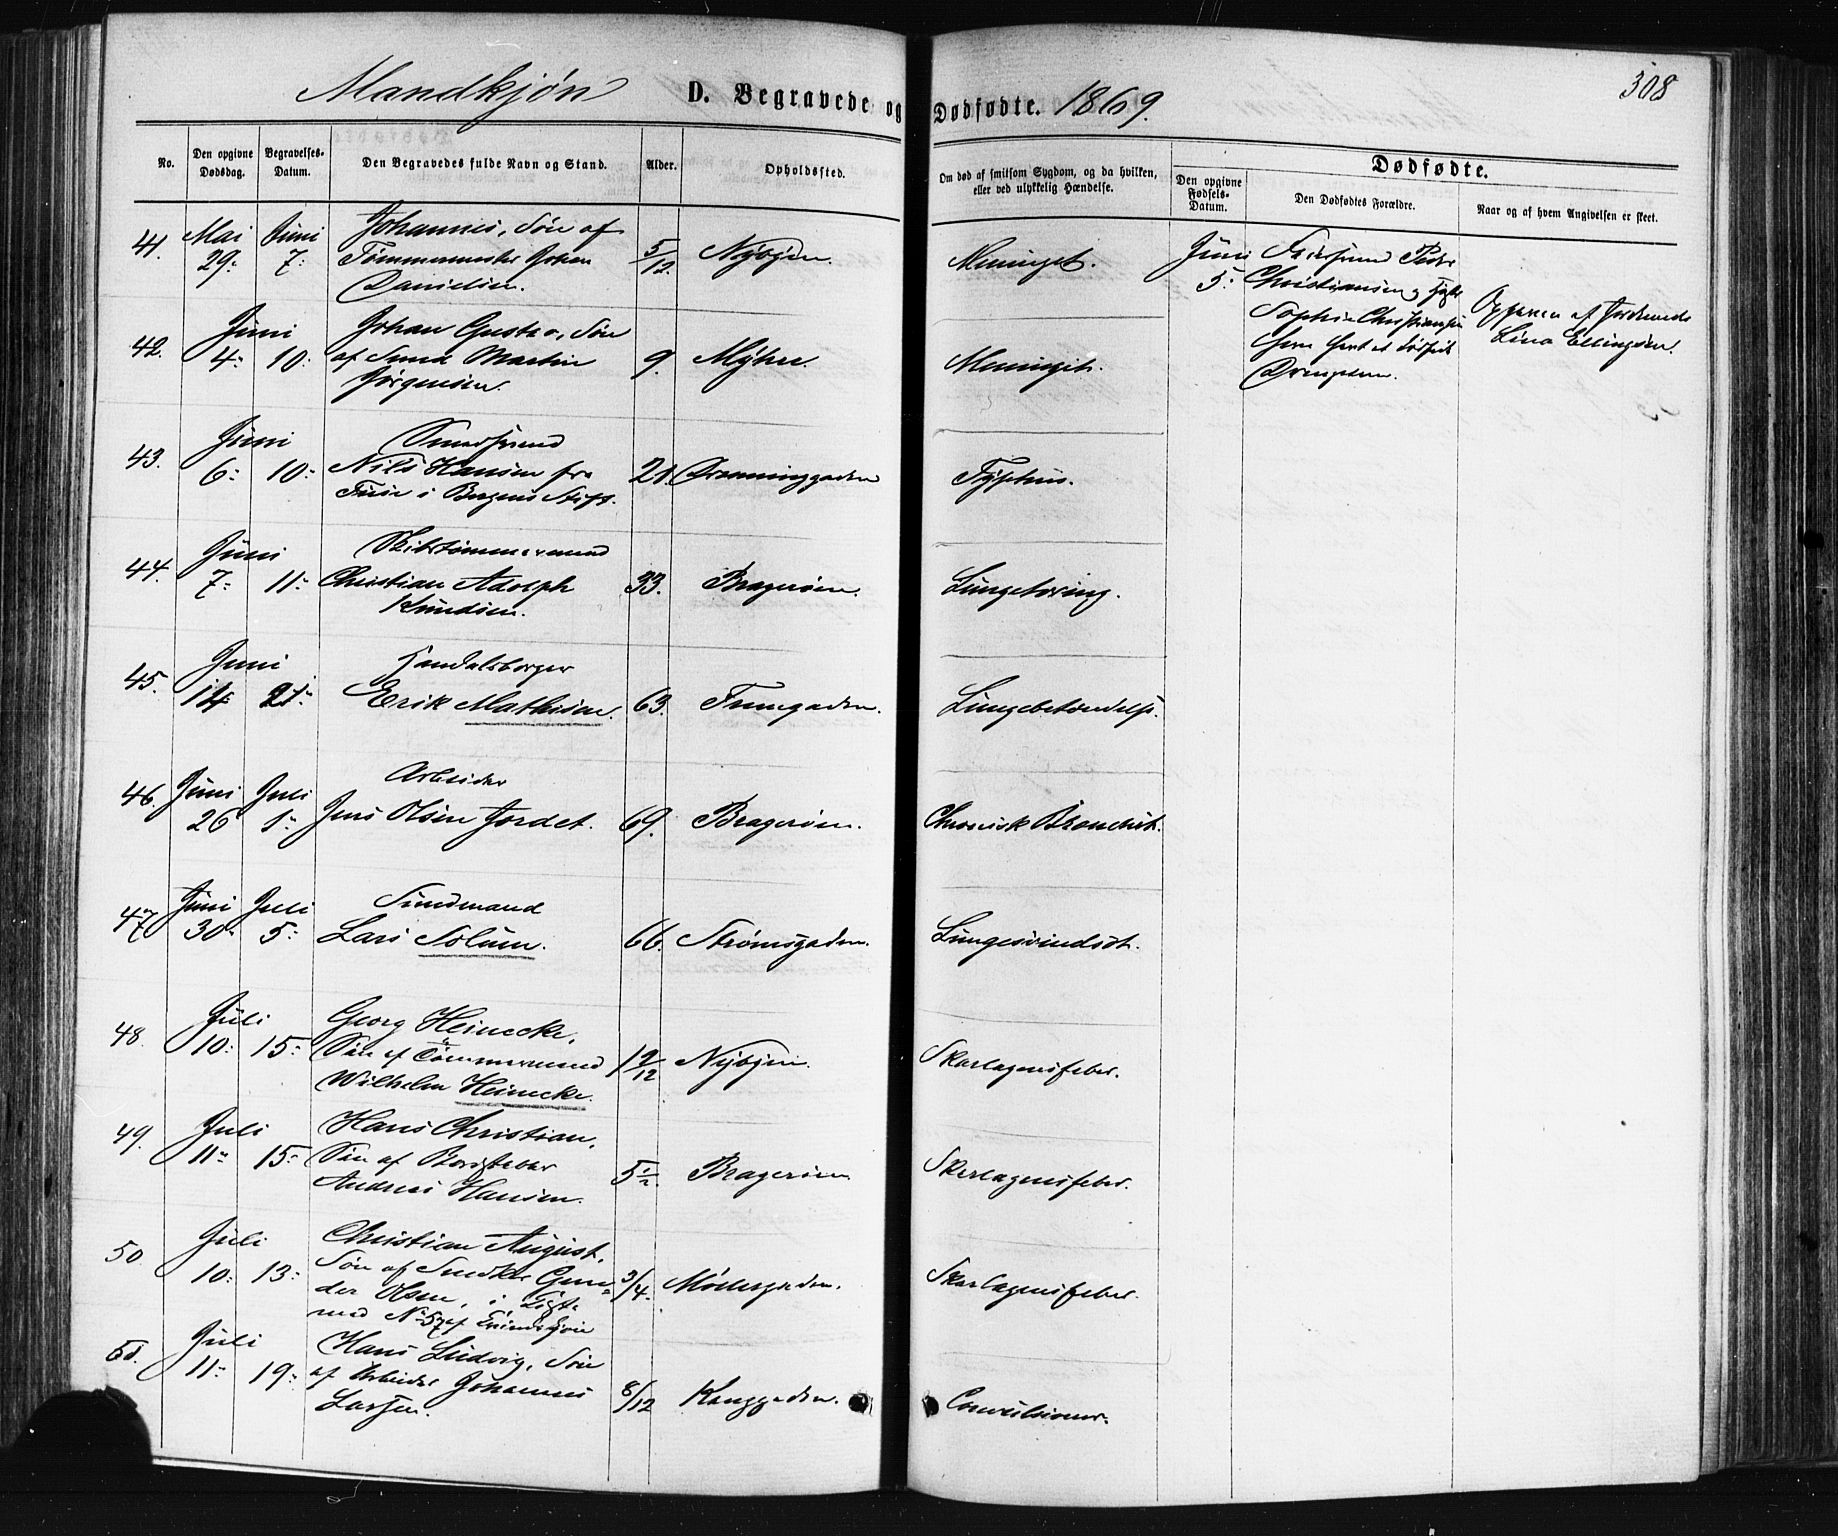 308
Mandkjøn D. Begravede og Dødfødte. 1869.
No. Den opgivne Dødsdag. Begravelses-Datum. Den Begravedes fulde Navn og Stand. Alder. Opholdssted. Om død af smitsom Sygdom, og da hvilken, eller ved ulykkelig Hændelse. Dødfødte.
Den opgivne Fødsels-Datum. Den Dødfødtes Forældre. Naar og af hvem Angivelsen er skeet.
41. Mai 29. Juni 7. Johannes, Søn af
Tømmermester Johan
Danielsen. 5/12 Nybyen. Meninget.
Juni 5. Peder
Christiansen og
Sophie Christiansen
Drengebarn.
af Jordemoder
Lina Ellingsen.
42. Juni 4. 10. Johan Gustav, Søn
af Smed Martin
Jørgensen. 9. Myhre. Meningit.
43. Juni 6. 10.
Nils Hansen fra
i Bergens Stift. 21. Dronninggaden Typhus.
44. Juni 7. 11. Skibstømmermand
Christian Adolph
Knudsen. 33. Bragerøen. Lungetæring.
45. Juni 14. 21. Handelsborger
Erik Mathisen. 63. Lungebetændelse.
46. Juni 26 Juli 1. Arbeider
Jens Olsen Jordet. 69. Bragerøen. Chronisk Bronchit.
47. Juni 30. Juli 5. Sundmand
Lars Solum. 66. Strømsgaden. Lungesvindsot.
48. Juli 10. 15. Georg Heinecke,
Søn af Tømmermand
Wilhelm Heinecke. 1 2/12 Nybyen. Skarlagensfeber.
49. Juli 11. 15. Hans Christian,
Søn af
Andreas Hansen. 5 1/2. Bragerøen. Skarlagensfeber.
50. Juli 10. 13. Christian August,
Søn af Snedker Gun-
der Olsen, i Ligk.
med No 57 af Qvindekjøn 3/4. Møllergaden. Skarlagensfeber.
51. Juli 11. 19. Hans Ludvig, Søn
af Arbeider Johannes
Larsen. 8/12 Konggaden. Convulsioner.